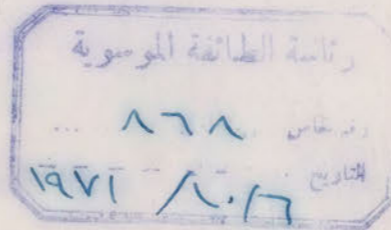 رئاسة الطائفة الموسوية
رقم خاص ... ٨٦٨ ...
التاريخ ٦/١٠/١٩٧١